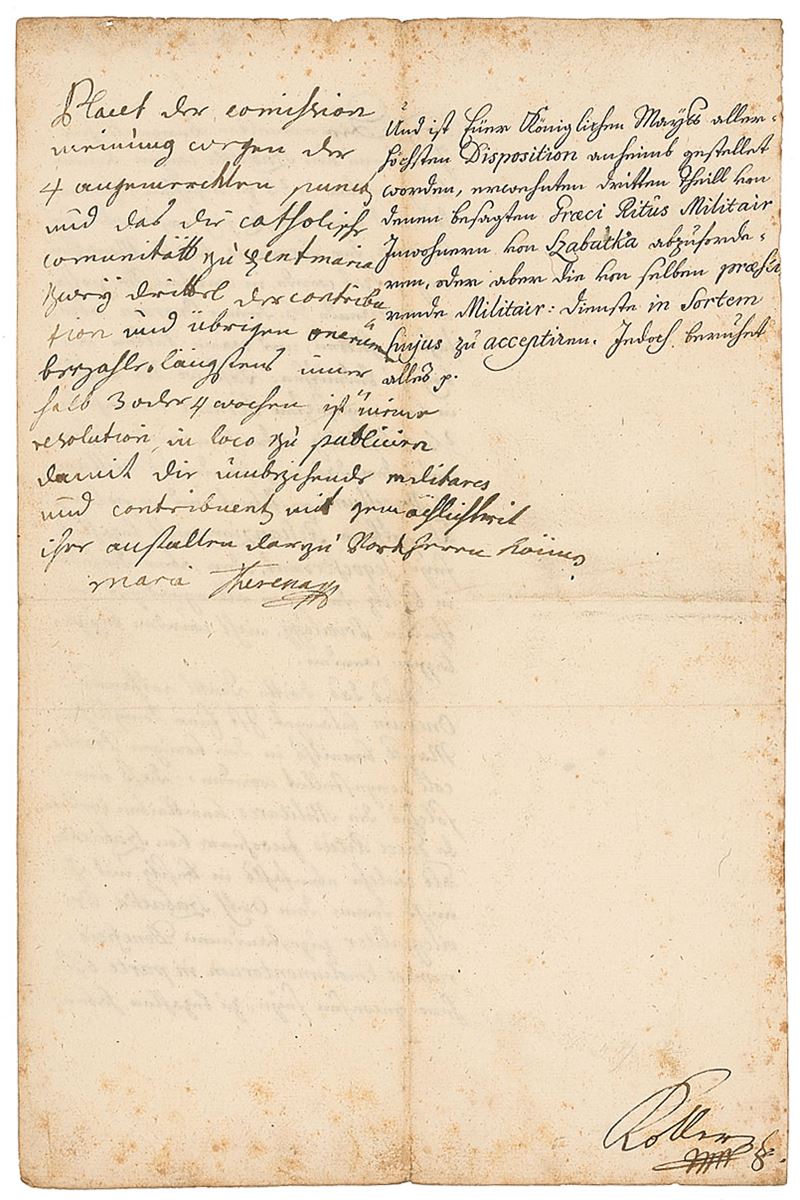 Placet der comission
meinung wegen der
4 angemerckten punct
und das die catholische
comunität zu Zentmaria
zwey drittel der contribu
tion und übrigen onerum
bezahle, längstens inner
halb 3 oder 4 wochen ist meine
resolution in loco zu publicirn
damit die umbziehende militares
und contribuenten mit gemächlichkeit
ihre anstalten darzu Vorkherren können
Maria Theresia
Und ist Euer Königlichen Maytt aller-
höchsten Disposition anheimb gestellet
worden, erwehnten dritten Theill von
denen besagten Græci Ritûs Militair
Inwohnern von Szabatka abzuforde-
ren, oder aber die von selben præsti
rende Militair: Dienste in Sortem
hujus zu acceptiren. Jedoch beruhet
alles p.
Koller